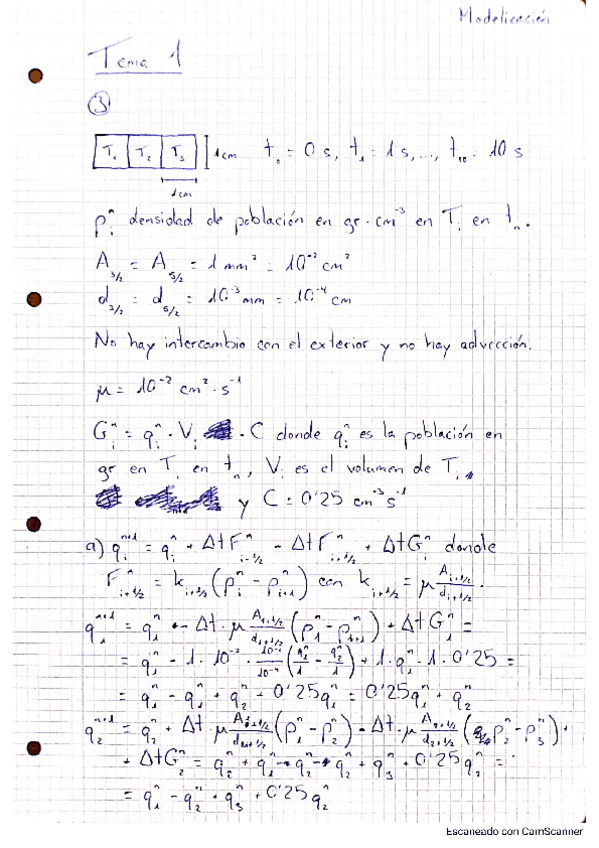 Modelización
Tema 1
③
T₁ T₂ T₃ 1cm t₀ = 0 s, t₁ = 1 s, ..., t₁₀ = 10 s
1cm
pᵢⁿ densidad de población en gr · cm⁻³ en Tᵢ en tₙ.
A₃/₂ = A₅/₂ = 1 mm² = 10⁻² cm²
d₃/₂ = d₅/₂ = 10⁻³ mm = 10⁻⁴ cm
No hay intercambio con el exterior y no hay advección.
μ = 10⁻² cm² · s⁻¹
Gᵢⁿ = qᵢⁿ · Vᵢ · C donde qᵢⁿ es la población en
gr en Tᵢ en tₙ, Vᵢ es el volumen de Tᵢ,
y C = 0'25 cm⁻³ s⁻¹
a) qᵢⁿ⁺¹ = qᵢⁿ + ΔtFⁿᵢ₋₁/₂ - ΔtFⁿᵢ₊₁/₂ + ΔtGᵢⁿ donde
Fⁿᵢ₊₁/₂ = kᵢ₊₁/₂(pᵢⁿ - pⁿᵢ₊₁) con kᵢ₊₁/₂ = μ Aᵢ₊₁/₂/dᵢ₊₁/₂.
q₁ⁿ⁺¹ = q₁ⁿ - Δt · μ A₁₊₁/₂/d₁₊₁/₂ (p₁ⁿ - pⁿ₁₊₁) + ΔtG₁ⁿ =
= q₁ⁿ - 1 · 10⁻² · 10⁻²/10⁻⁴ (q₁ⁿ/1 - q₂ⁿ/1) + 1 · q₁ⁿ · 1 · 0'25 =
= q₁ⁿ - q₁ⁿ + q₂ⁿ + 0'25q₁ⁿ = 0'25q₁ⁿ + q₂ⁿ
q₂ⁿ⁺¹ = q₂ⁿ + Δt · μ (p₁ⁿ - p₂ⁿ) - Δt · μ A₂₊₁/₂/d₂₊₁/₂ (p₂ⁿ - p₃ⁿ) +
+ ΔtG₂ⁿ = q₂ⁿ + q₁ⁿ - q₂ⁿ - q₂ⁿ + q₃ⁿ + 0'25q₂ⁿ =
= q₁ⁿ - q₂ⁿ + q₃ⁿ + 0'25q₂ⁿ
Escaneado con CamScanner